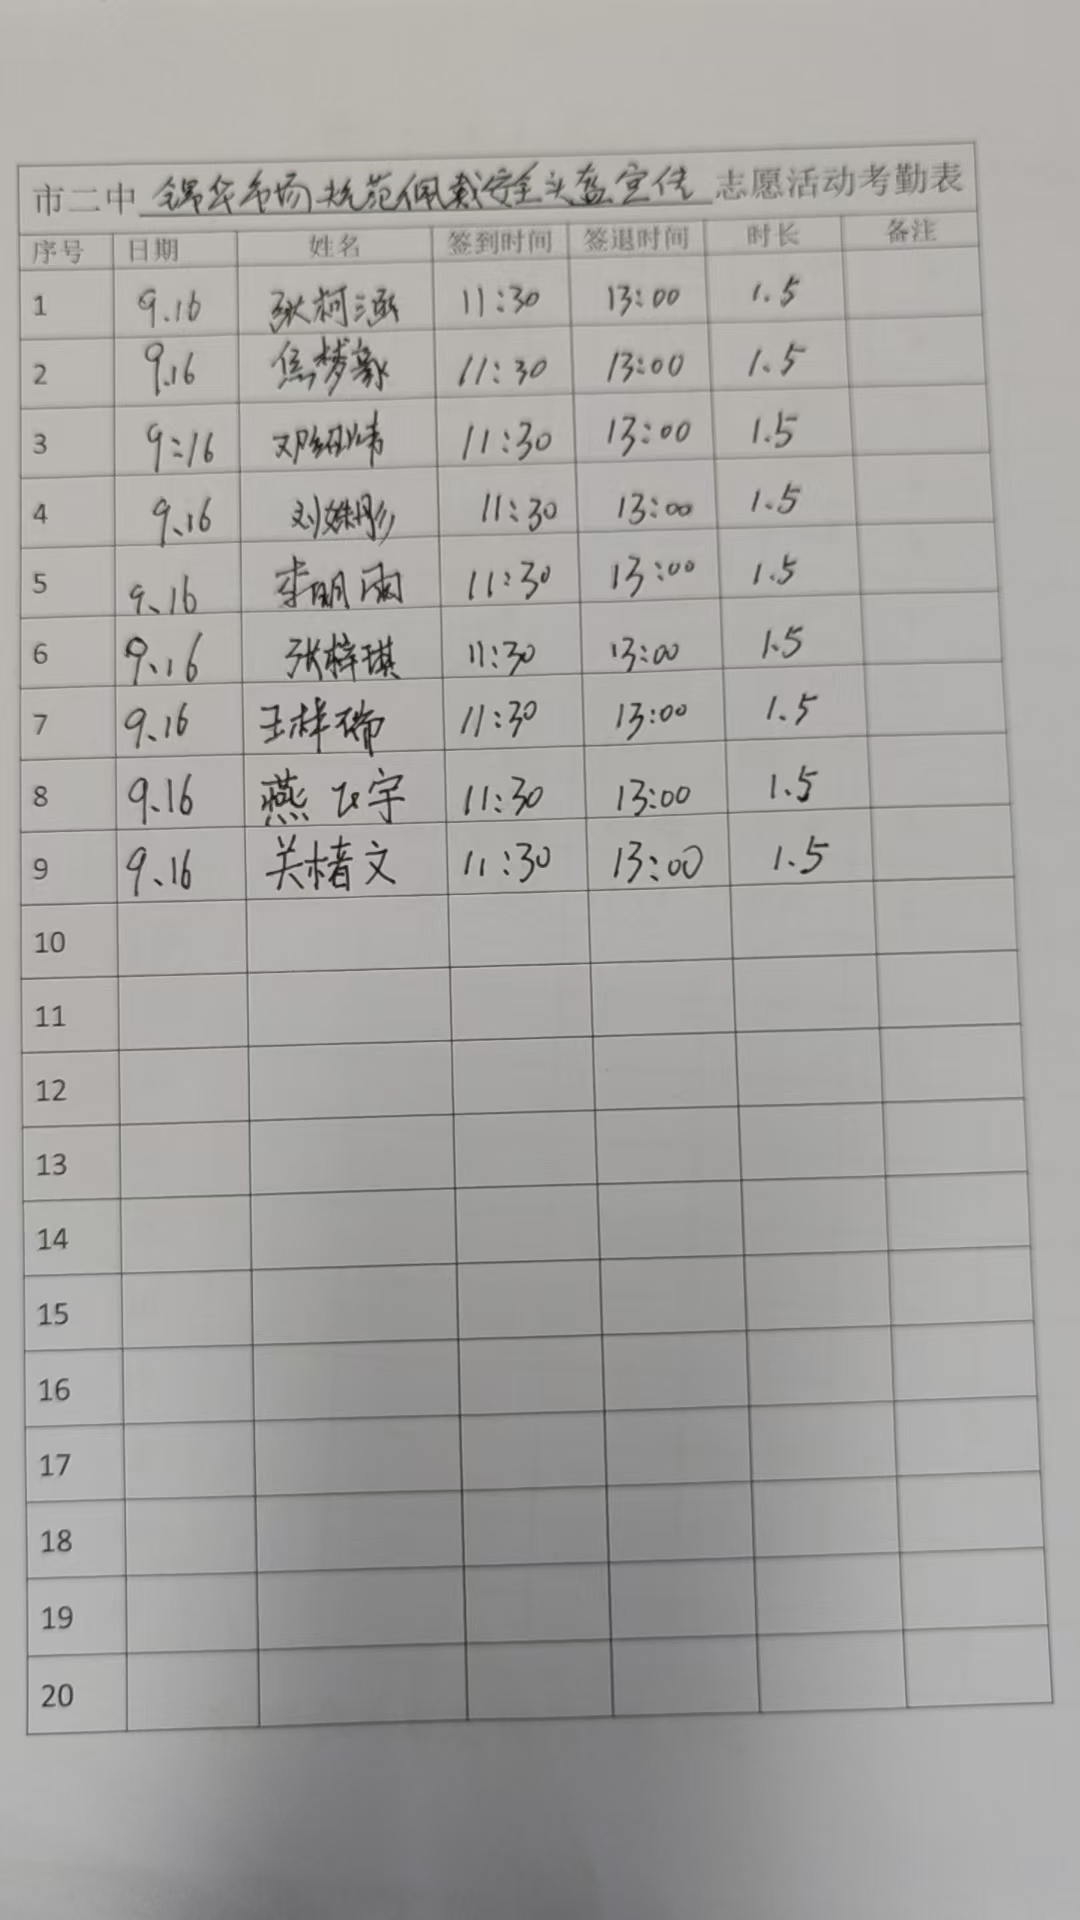 市二中 锦华市场规范佩戴安全头盔宣传 志愿活动考勤表
序号 日期 姓名 签到时间 签退时间 时长 备注
1 9.16 张柯涵 11:30 13:00 1.5
2 9.16 焦梦豪 11:30 13:00 1.5
3 9:16 邓绍炜 11:30 13:00 1.5
4 9.16 刘姝彤 11:30 13:00 1.5
5 9.16 李明雨 11:30 13:00 1.5
6 9.16 张梓琪 11:30 13:00 1.5
7 9.16 王梓瑞 11:30 13:00 1.5
8 9.16 燕飞宇 11:30 13:00 1.5
9 9.16 关楮文 11:30 13:00 1.5
10
11
12
13
14
15
16
17
18
19
20